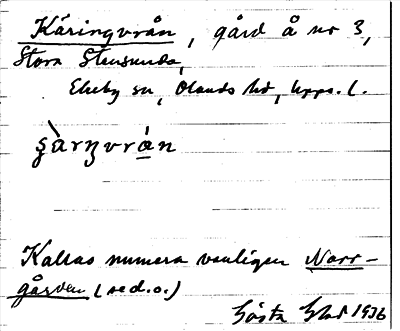 Käringvrån, gård å nr 3,
Stora Stensunda,
Ekeby sn, Olands hd, Upps. l.
Kallas numera vanligen Norr-
gården (se d. o.)
Gösta Ehd 1936